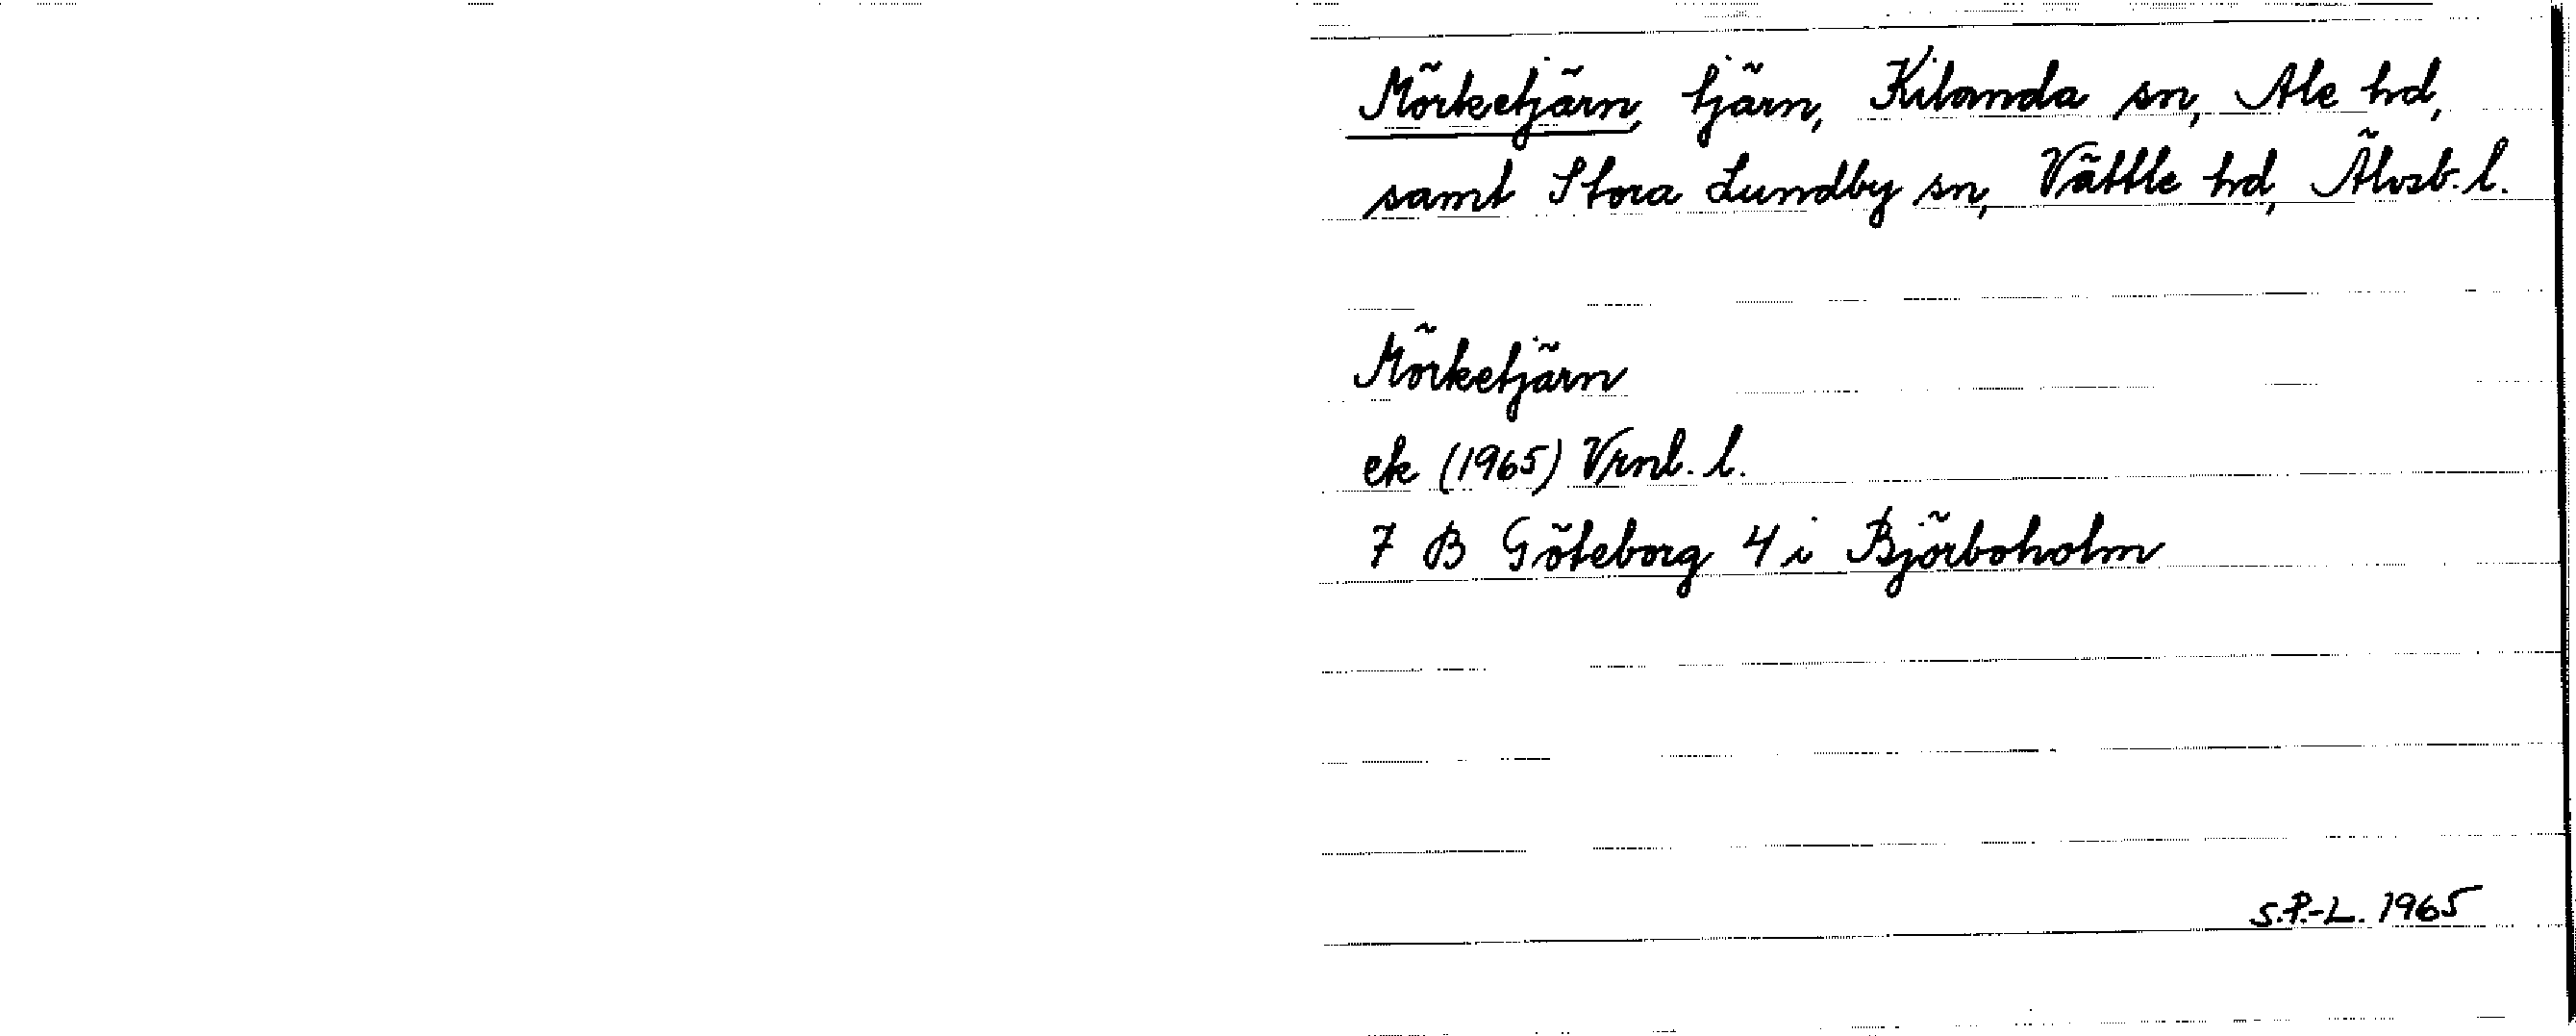 Mörketjärn, tjärn, Kilanda sn, Ale hd,
samt Stora Lundby sn, Vättle hd, Älvsb. l.
Mörketjärn
ek (1965) Vrnl. l.
7 B Göteborg 4 i Björboholm
S.P.-L. 1965